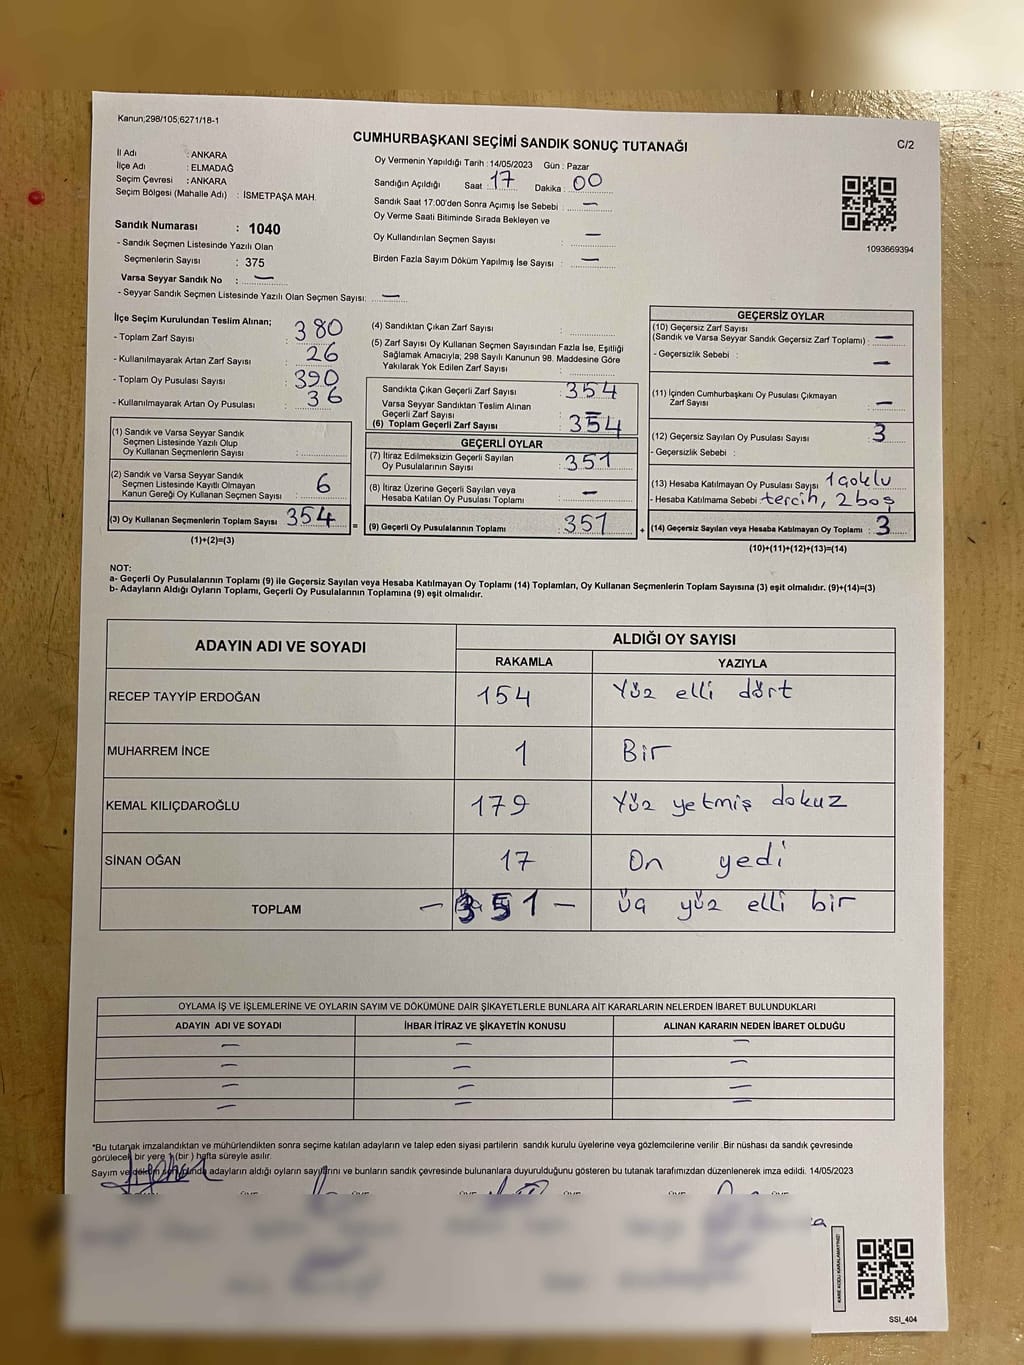 Kanun;298/105;6271/18-1
CUMHURBAŞKANI SEÇİMİ SANDIK SONUÇ TUTANAĞI
C/2
İl Adı : ANKARA
İlçe Adı : ELMADAĞ
Seçim Çevresi : ANKARA
Seçim Bölgesi (Mahalle Adı) : İSMETPAŞA MAH.
Sandık Numarası : 1040
- Sandık Seçmen Listesinde Yazılı Olan
Seçmenlerin Sayısı : 375
Varsa Seyyar Sandık No : —
- Seyyar Sandık Seçmen Listesinde Yazılı Olan Seçmen Sayısı: —
Oy Vermenin Yapıldığı Tarih : 14/05/2023 Gün : Pazar
Sandığın Açıldığı Saat : 17 Dakika : 00
Sandık Saat 17:00'den Sonra Açımış İse Sebebi : —
Oy Verme Saati Bitiminde Sırada Bekleyen ve
Oy Kullandırılan Seçmen Sayısı : —
Birden Fazla Sayım Döküm Yapılmış İse Sayısı : —
1093669394
İlçe Seçim Kurulundan Teslim Alınan;
- Toplam Zarf Sayısı : 380
- Kullanılmayarak Artan Zarf Sayısı : 26
- Toplam Oy Pusulası Sayısı : 390
- Kullanılmayarak Artan Oy Pusulası : 36
(1) Sandık ve Varsa Seyyar Sandık
Seçmen Listesinde Yazılı Olup
Oy Kullanan Seçmenlerin Sayısı :
(2) Sandık ve Varsa Seyyar Sandık
Seçmen Listesinde Kayıtlı Olmayan
Kanun Gereği Oy Kullanan Seçmen Sayısı : 6
(3) Oy Kullanan Seçmenlerin Toplam Sayısı : 354
(1)+(2)=(3)
(4) Sandıktan Çıkan Zarf Sayısı :
(5) Zarf Sayısı Oy Kullanan Seçmen Sayısından Fazla İse, Eşitliği
Sağlamak Amacıyla; 298 Sayılı Kanunun 98. Maddesine Göre
Yakılarak Yok Edilen Zarf Sayısı :
Sandıkta Çıkan Geçerli Zarf Sayısı : 354
Varsa Seyyar Sandıktan Teslim Alınan
Geçerli Zarf Sayısı : —
(6) Toplam Geçerli Zarf Sayısı : 354
GEÇERLİ OYLAR
(7) İtiraz Edilmeksizin Geçerli Sayılan
Oy Pusulalarının Sayısı : 351
(8) İtiraz Üzerine Geçerli Sayılan veya
Hesaba Katılan Oy Pusulası Toplamı : —
= (9) Geçerli Oy Pusulalarının Toplamı : 351 +
GEÇERSİZ OYLAR
(10) Geçersiz Zarf Sayısı
(Sandık ve Varsa Seyyar Sandık Geçersiz Zarf Toplamı) : —
- Geçersizlik Sebebi : —
(11) İçinden Cumhurbaşkanı Oy Pusulası Çıkmayan
Zarf Sayısı : —
(12) Geçersiz Sayılan Oy Pusulası Sayısı : 3
- Geçersizlik Sebebi :
(13) Hesaba Katılmayan Oy Pusulası Sayısı 1 çoklu
- Hesaba Katılmama Sebebi tercih, 2 boş
(14) Geçersiz Sayılan veya Hesaba Katılmayan Oy Toplamı : 3
(10)+(11)+(12)+(13)=(14)
NOT:
a- Geçerli Oy Pusulalarının Toplamı (9) ile Geçersiz Sayılan veya Hesaba Katılmayan Oy Toplamı (14) Toplamları, Oy Kullanan Seçmenlerin Toplam Sayısına (3) eşit olmalıdır. (9)+(14)=(3)
b- Adayların Aldığı Oyların Toplamı, Geçerli Oy Pusulalarının Toplamına (9) eşit olmalıdır.
ADAYIN ADI VE SOYADI ALDIĞI OY SAYISI
RAKAMLA YAZIYLA
RECEP TAYYİP ERDOĞAN 154 Yüz elli dört
MUHARREM İNCE 1 Bir
KEMAL KILIÇDAROĞLU 179 Yüz yetmiş dokuz
SİNAN OĞAN 17 On yedi
TOPLAM — 351 — üç yüz elli bir
OYLAMA İŞ VE İŞLEMLERİNE VE OYLARIN SAYIM VE DÖKÜMÜNE DAİR ŞİKAYETLERLE BUNLARA AİT KARARLARIN NELERDEN İBARET BULUNDUKLARI
ADAYIN ADI VE SOYADI İHBAR İTİRAZ VE ŞİKAYETİN KONUSU ALINAN KARARIN NEDEN İBARET OLDUĞU
— — —
— — —
— — —
— — —
*Bu tutanak imzalandıktan ve mühürlendikten sonra seçime katılan adayların ve talep eden siyasi partilerin sandık kurulu üyelerine veya gözlemcilerine verilir .Bir nüshası da sandık çevresinde
görülecek bir yere 1 (bir ) hafta süreyle asılır.
Sayım ve adayların aldığı oyların sayılarını ve bunların sandık çevresinde bulunanlara duyurulduğunu gösteren bu tutanak tarafımızdan düzenlenerek imza edildi. 14/05/2023
SSI_404